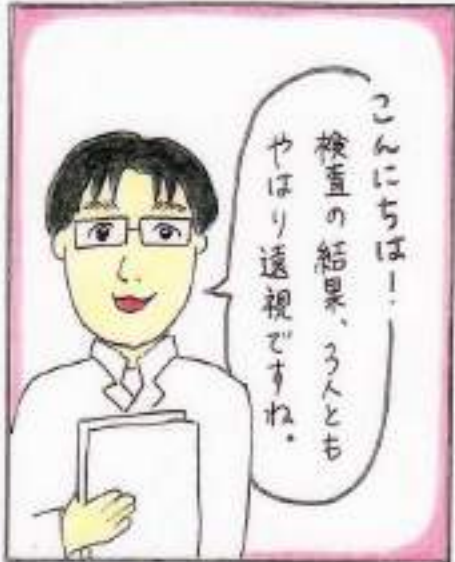 こんにちは！
検査の結果、3人とも
やはり遠視ですね。